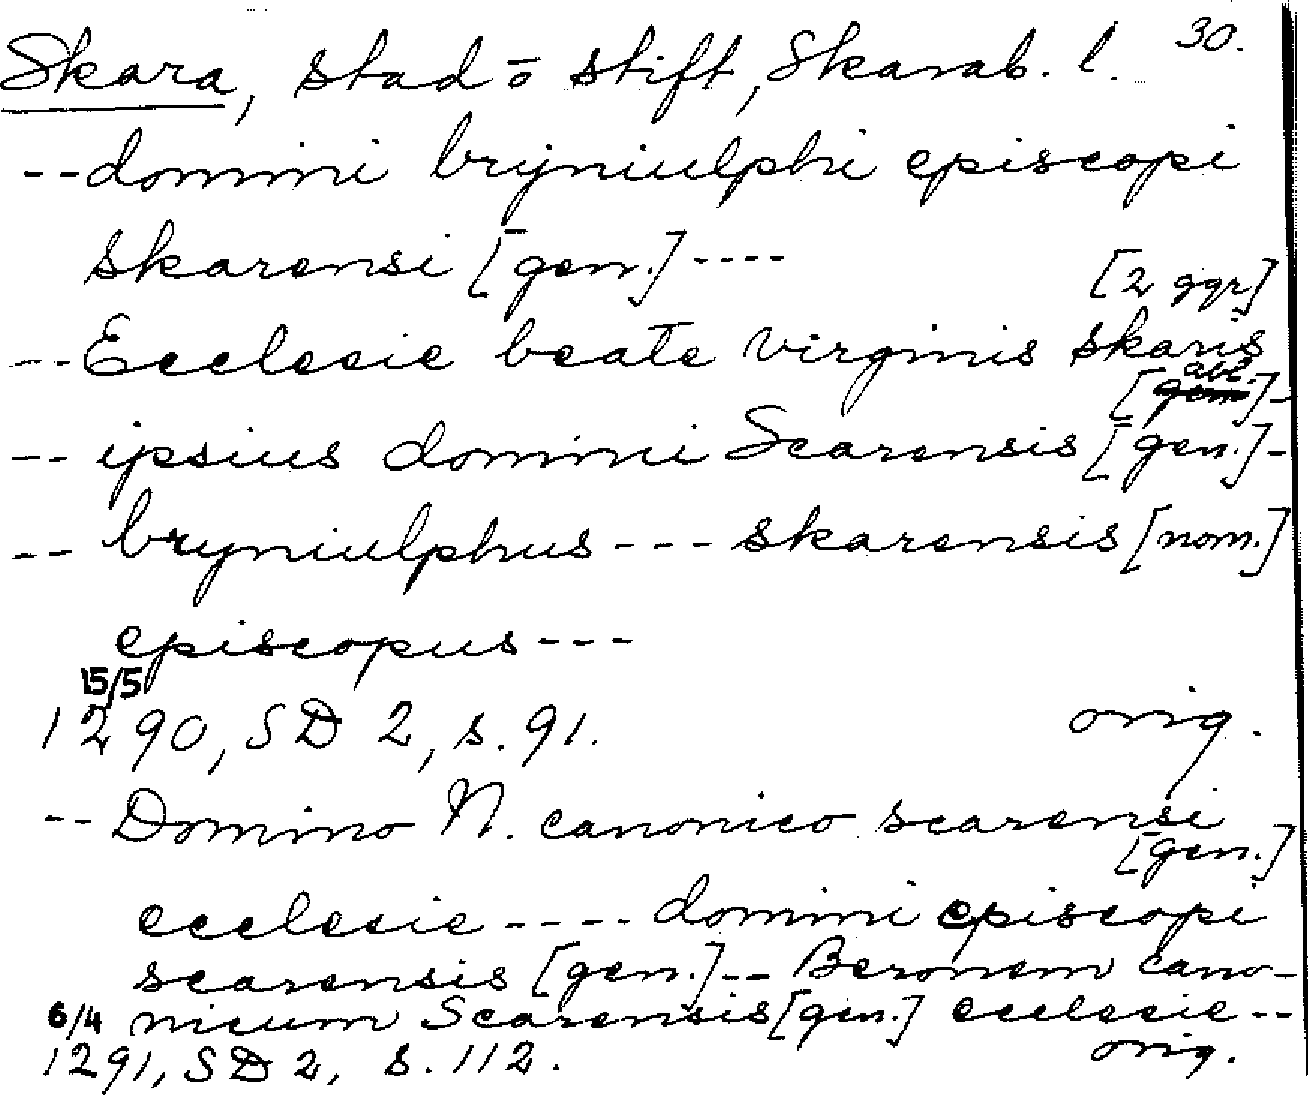 30.
Skara, stad o stift, Skarab. l.
--domini brijniulphi episcopi
skarensi [gen.]----
[2 ggr]
--Ecclesie beate virginis skaris
[abl.]-
-- ipsius domini Scarensis [gen.]-
-- bryniulphus --- skarensis [nom.]
episcopus ---
15/5
1290, SD 2, s. 91. orig.
-- Domino N. canonico scarensi
[gen.]
ecclesie ---- domini episcopi
scarensis [gen.]-- Beronem cano-
6/4 nicum Scarensis [gen.] ecclesie --
1291, SD 2, s. 112. orig.